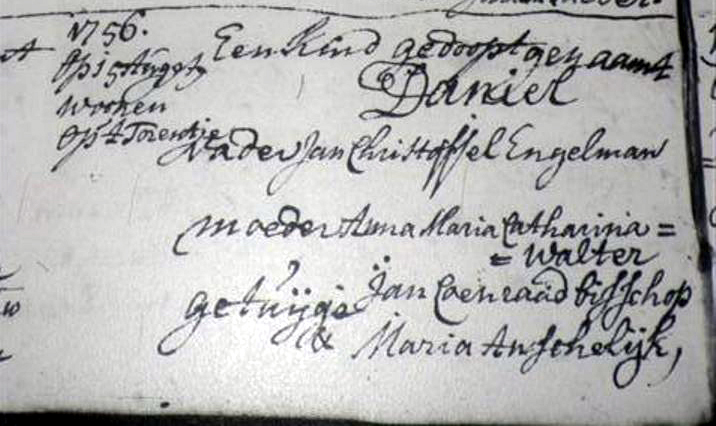 1756.
Op 15 Augst
woonen
Op 't Torentje
Een Kind gedoopt genaamt
Daniel
vader Jan Christoffel Engelman
moeder Anna Maria Catharina =
= Walter
getuijge Jan Coenraad bisschop
& Maria Anschelijk,